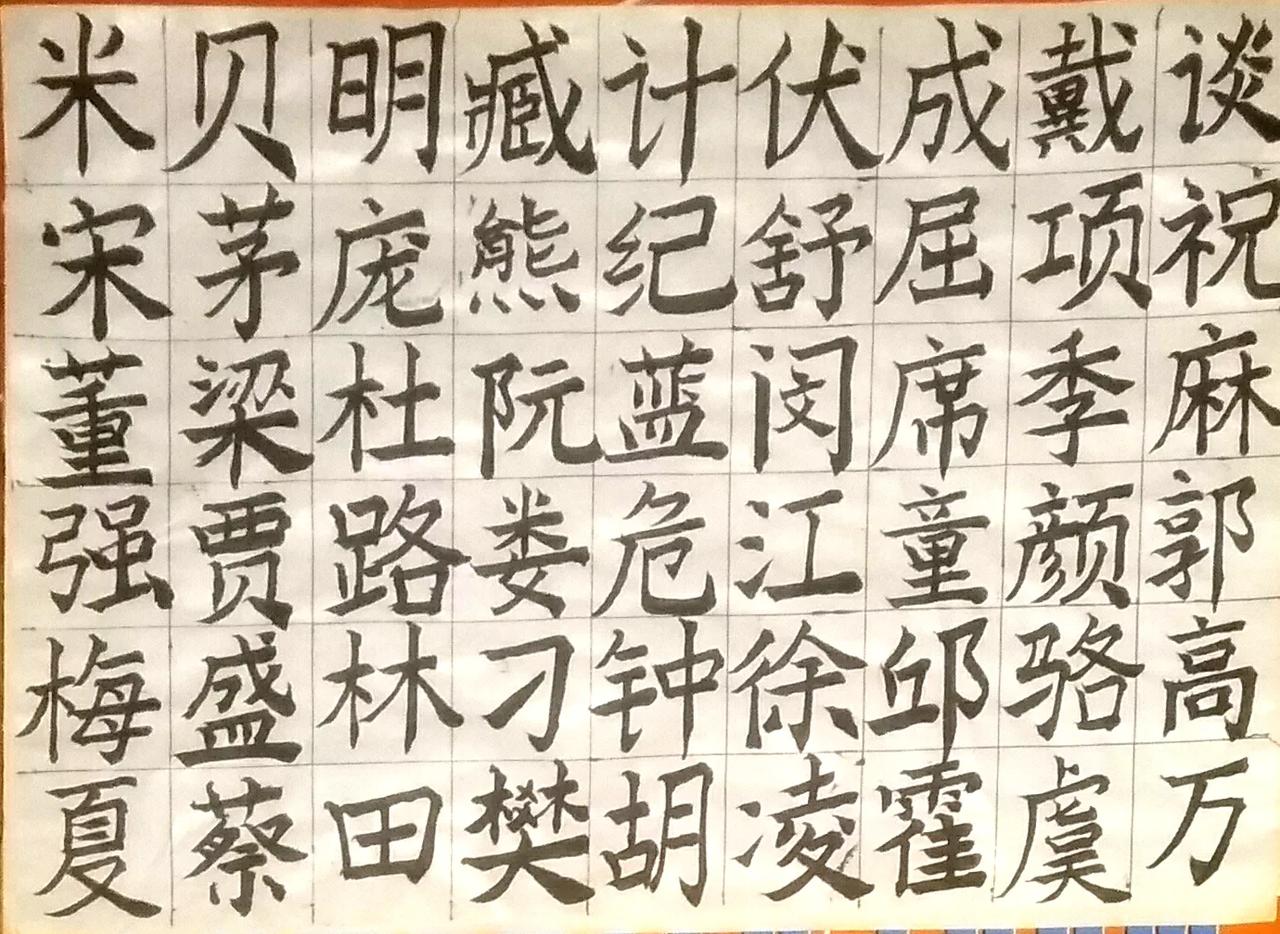 米贝明臧计伏成戴谈
宋茅庞熊纪舒屈项祝
董梁杜阮蓝闵席季麻
强贾路娄危江童颜郭
梅盛林刁钟徐邱骆高
夏蔡田樊胡凌霍虞万